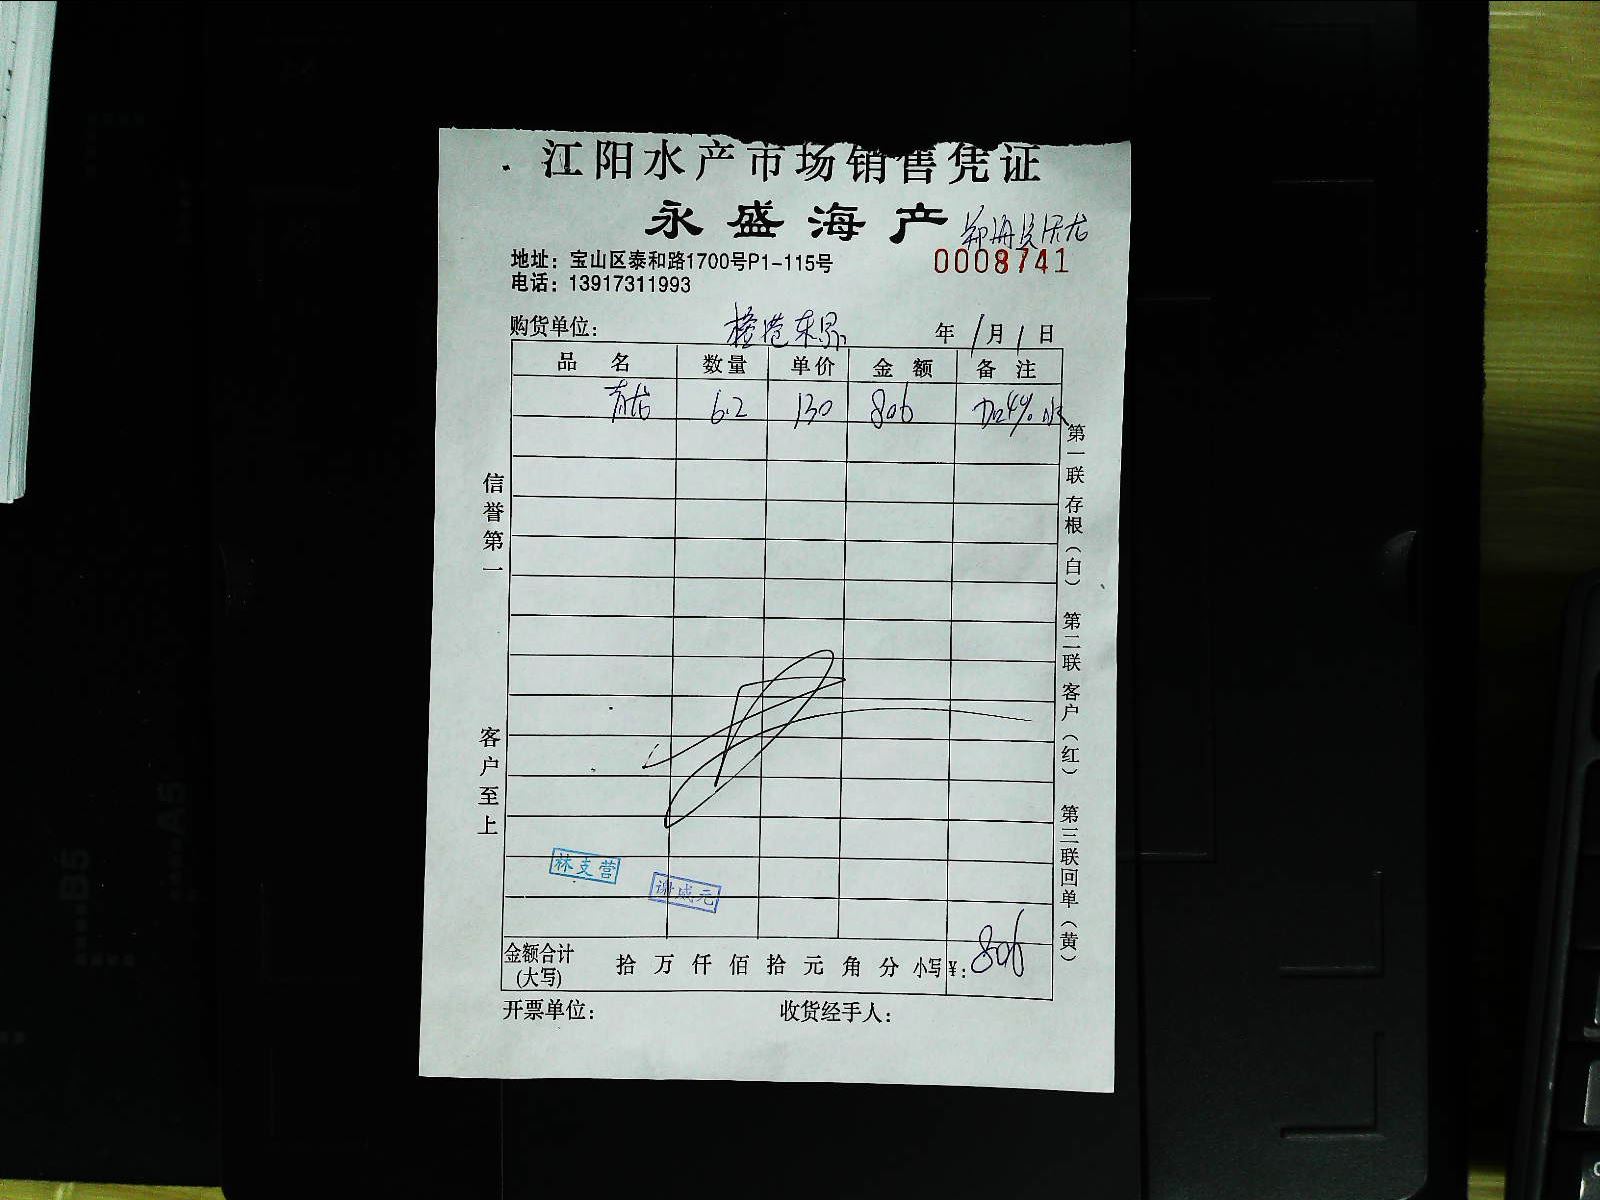 江阳水产市场销售凭证
永盛海产
地址：宝山区泰和路1700号P1-115号
0008741
电话：13917311993
购货单位： 年 1月 1日
品 名 数量 单价 金 额 备 注
青龙 6.2 130 806 加4%水
信誉第一
客户至上
第一联 存根（白） 第二联 客户（红） 第三联 回单（黄）
林支营
谢成元
金额合计 拾 万 仟 佰 拾 元 角 分 小写¥：806
(大写)
开票单位： 收货经手人：
B5
A5